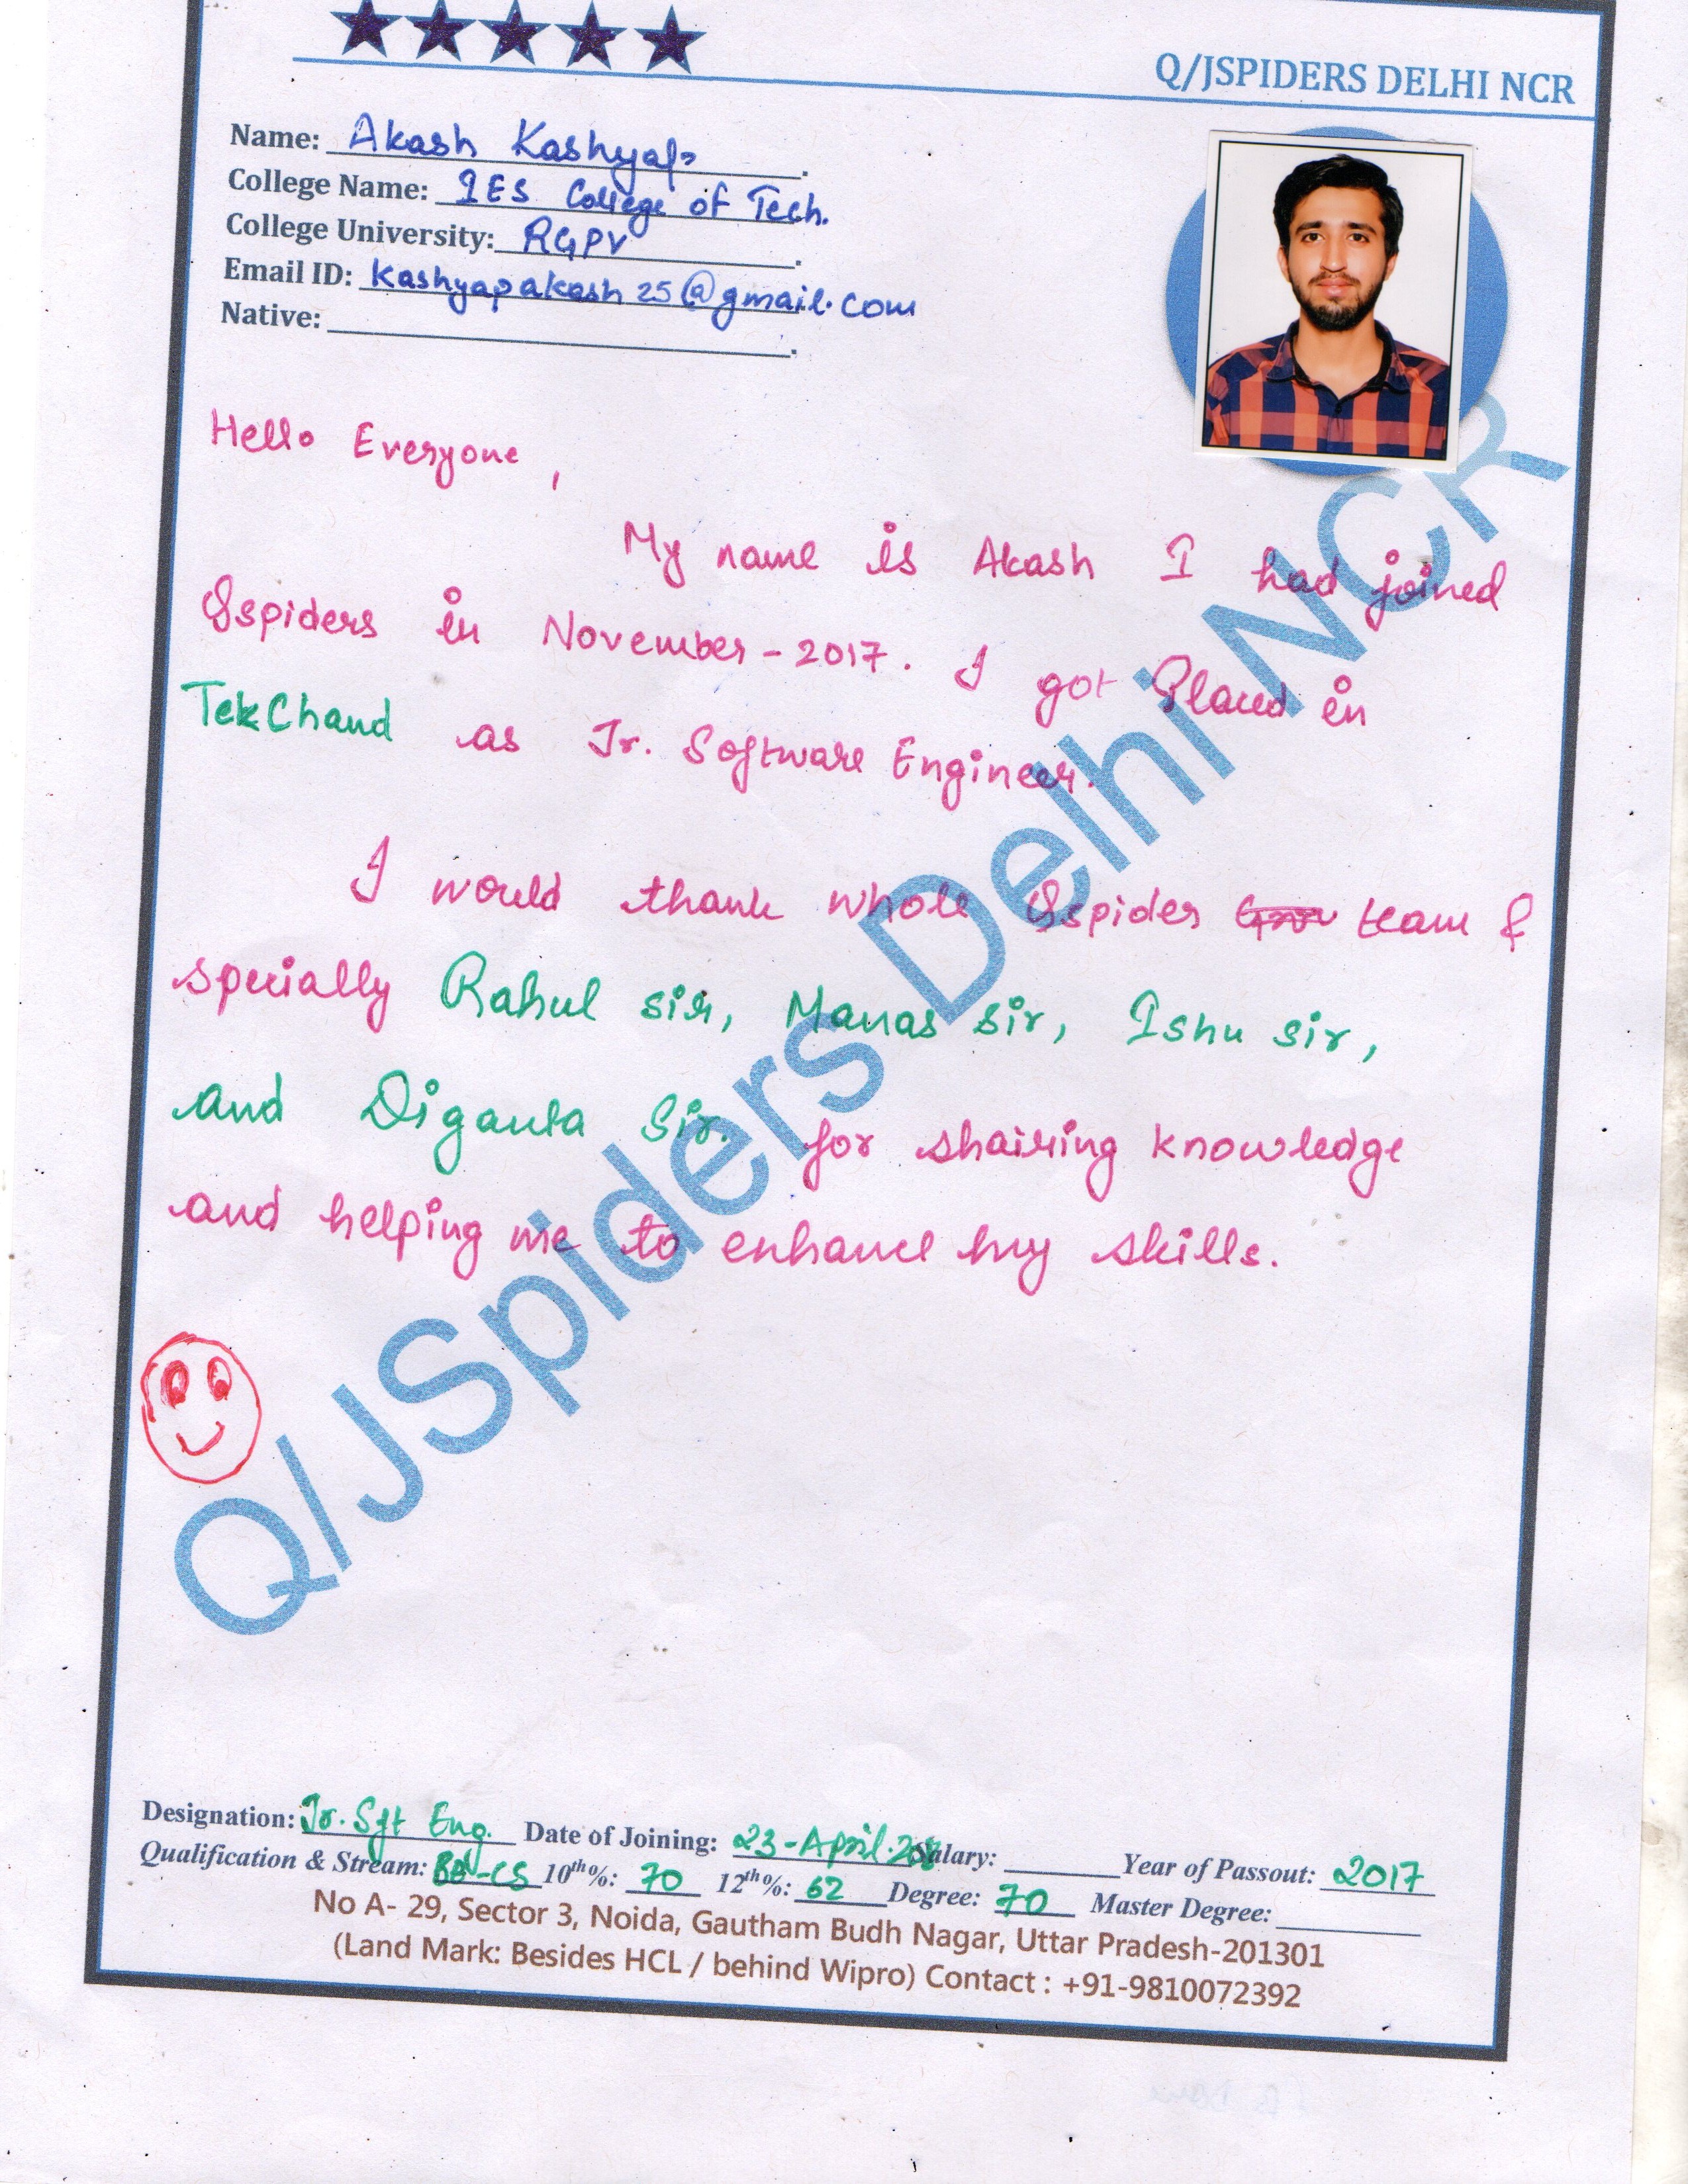 Q/JSPIDERS DELHI NCR
Name: Akash Kashyap
College Name: IES College of Tech.
College University: RGPV
Email ID: kashyapakash25@gmail.com
Native:
Hello Everyone,
My name is Akash I had joined
Jspiders in November-2017. I got Placed in
TekChand as Jr. Software Engineer.
I would thank whole Jspider team &
specially Rahul sir, Manas sir, Ishu sir,
and Diganta Sir. for shairing knowledge
and helping me to enhance my skills.
Q/JSpiders Delhi NCR
Designation: Jr. Sft Eng. Date of Joining: 23-April. Salary: Year of Passout: 2017
Qualification & Stream: 10th%: 70 12th%: 62 Degree: 70 Master Degree:
No A- 29, Sector 3, Noida, Gautham Budh Nagar, Uttar Pradesh-201301
(Land Mark: Besides HCL / behind Wipro) Contact : +91-9810072392